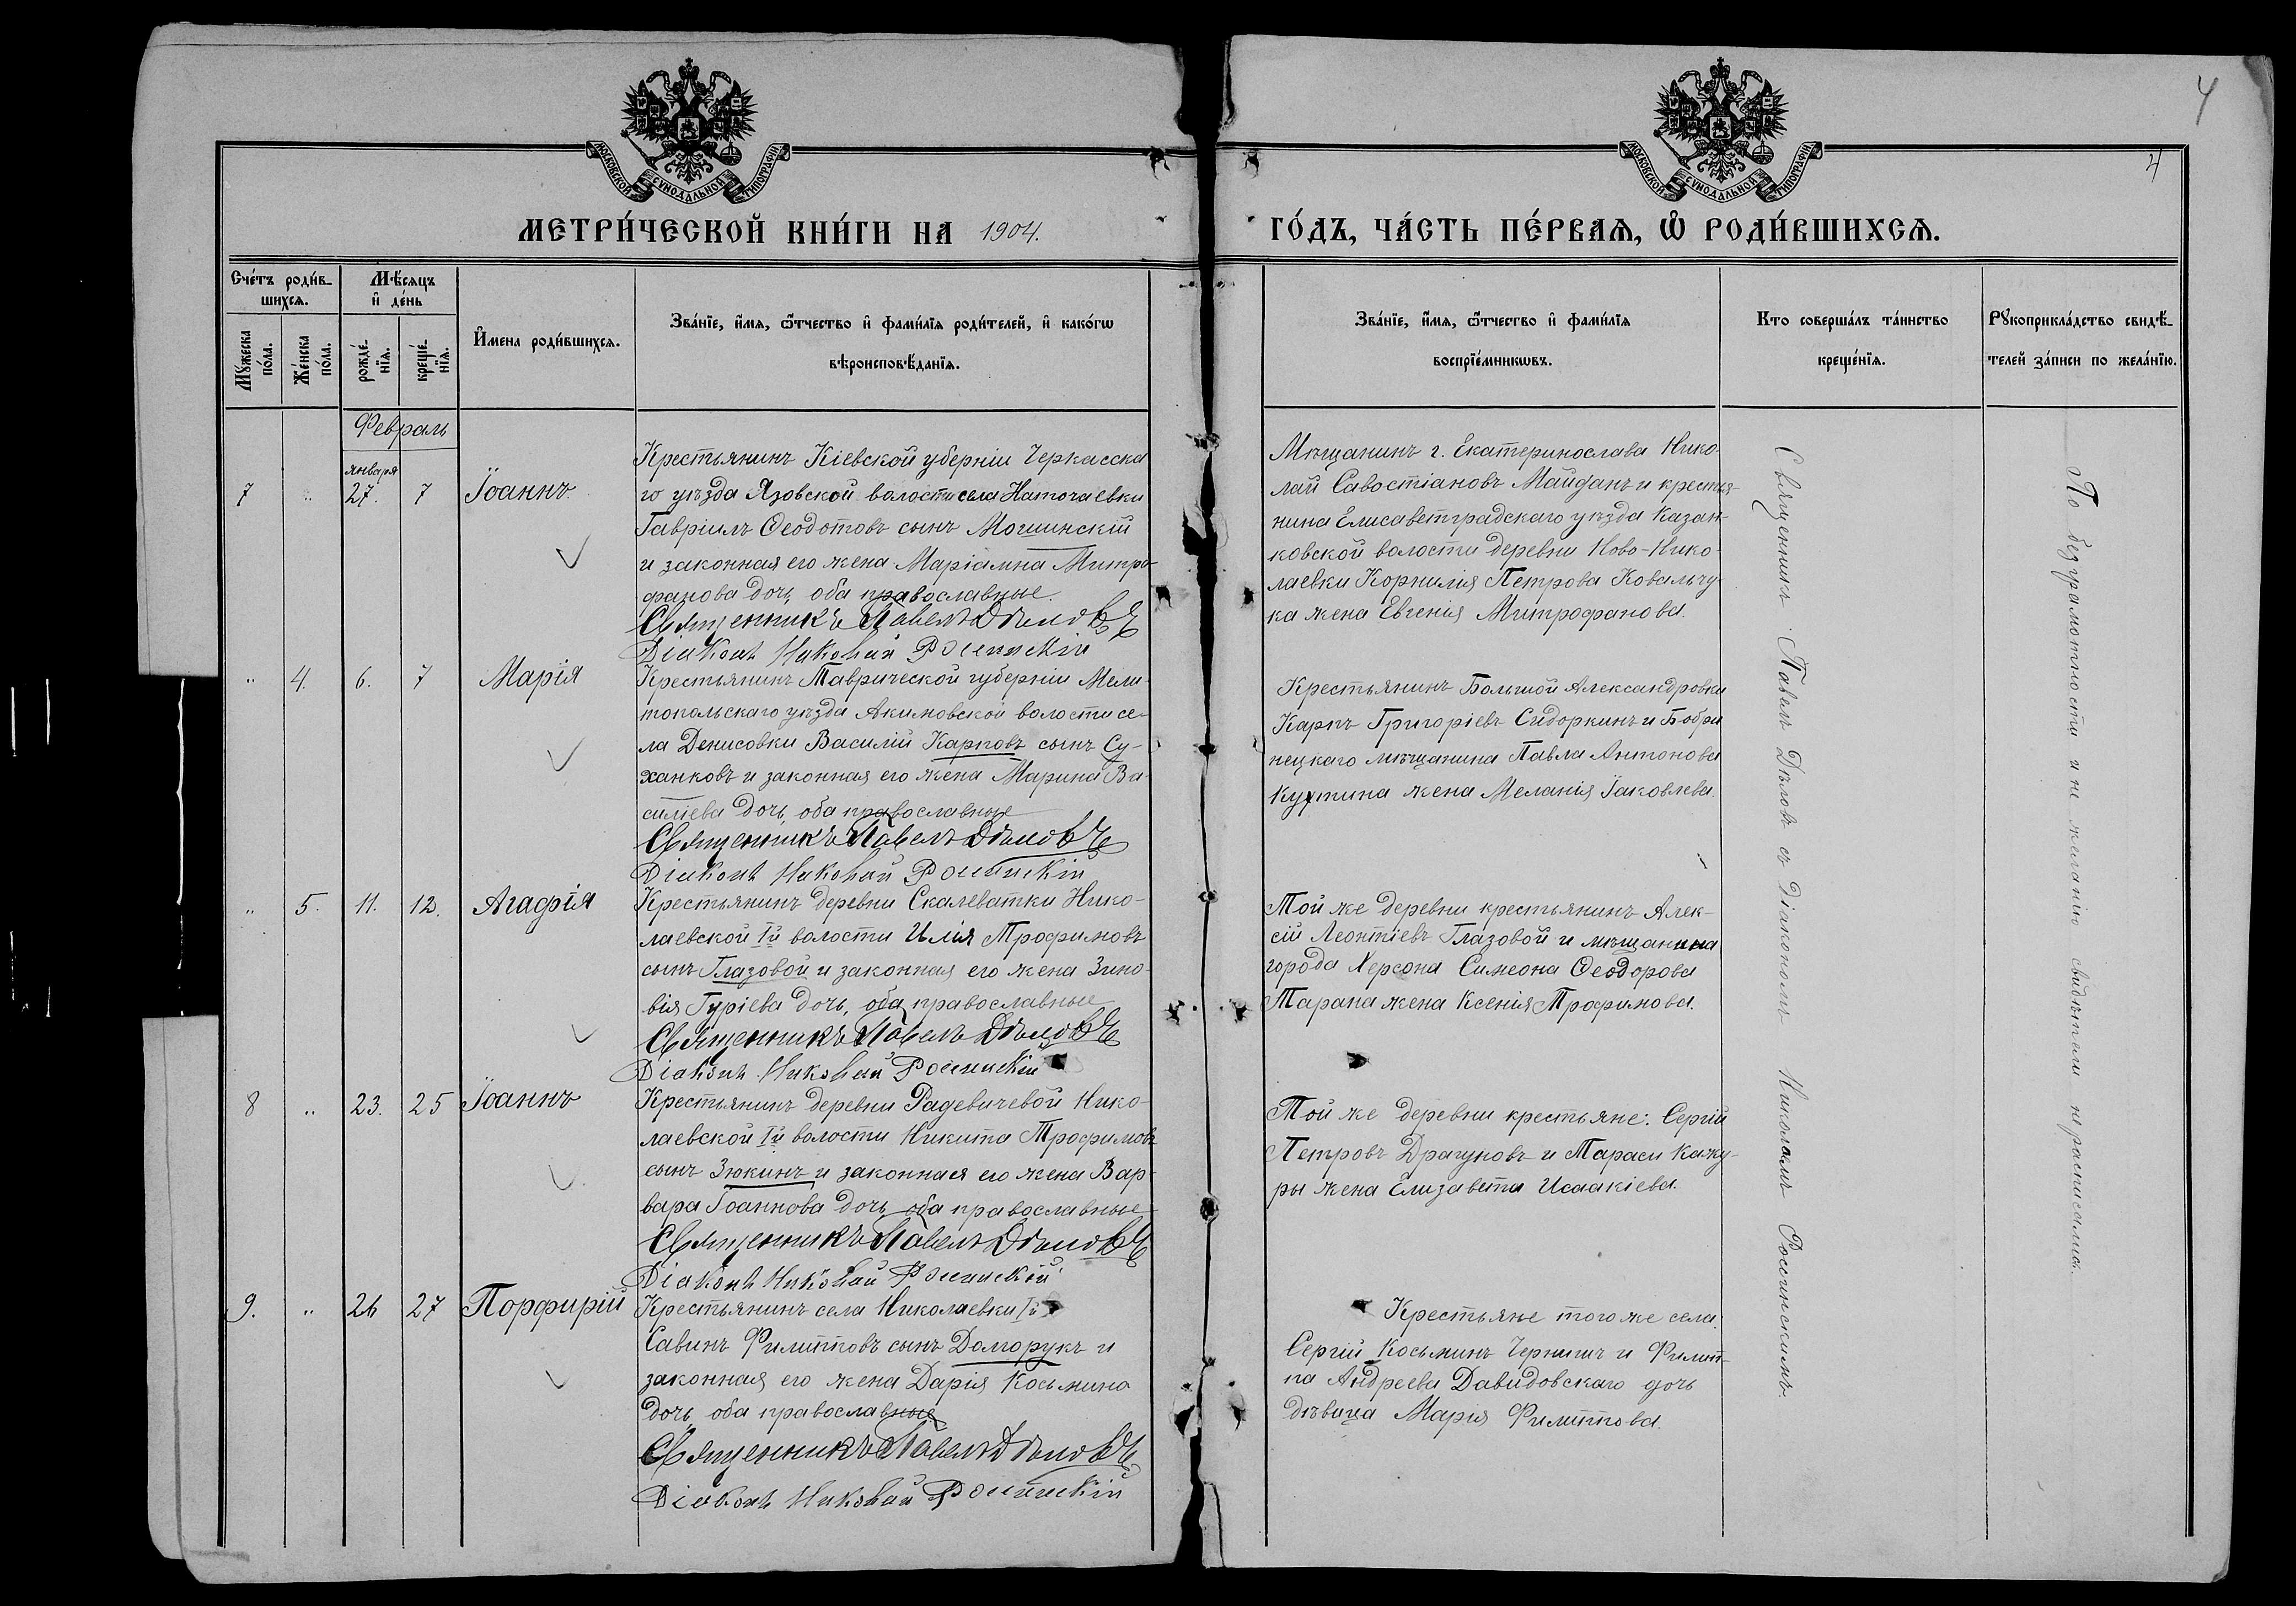 4
4
МОСКОВСКОЙ СУНОДАЛЬНОЙ ТИПОГРАФІИ
МОСКОВСКОЙ СУНОДАЛЬНОЙ ТИПОГРАФІИ
МЕТРИ́ЧЕСКОЙ КНИ́ГИ НА 1904.
ГО́ДЪ, ЧА́СТЬ ПЕ́РВАЯ, Ѽ РОДИ́ВШИХСЯ.
Сче́тъ роди́в-
шихся.
Мꙋжеска
по́ла.
Же́нска
по́ла.
Мѣ́сяцъ
и҆ де́нь
рожде́-
нїя.
креще́-
нїя.
И҆́мена роди́вшихся.
Зва́нїе, и҆́мя, ѻ҆́тчество и҆ фами́лїя роди́телей, и҆ како́гѡ
вѣроисповѣ́данїя.
Зва́нїе, и҆́мя, ѻ҆́тчество и҆ фами́лїя
воспрїе́мникѡвъ.
Кто соверша́лъ та́инство
креще́нїя.
Рꙋкоприкла́дство свидѣ́-
телей за́писи по жела́нїю.
Февраль
января
7 " 27. 7 Іоаннъ
Крестьянинъ Кіевской губерніи Черкасска
го уѣзда Язовской волости села Наточаевки
Гавріилъ Ѳеодотовъ сынъ Мошинскій
и законная его жена Маріамна Митро-
фанова дочь, оба православные.
Священникъ Павелъ Дѣловъ
Діаконъ Николай Россинскій
Мѣщанинъ г. Екатеринослава Нико-
лай Савостіановъ Майданъ и крестья-
нина Елисаветградскаго уѣзда Казан-
ковской волости деревни Ново-Нико-
лаевки Корнилія Петрова Ковальчу-
ка жена Евгенія Митрофанова.
" 4. 6. 7 Марія
Крестьянинъ Таврической губерніи Мели-
топольскаго уѣзда Акимовской волости се-
ла Денисовки Василій Карповъ сынъ Су-
ханковъ и законная его жена Марина Ва-
силіева дочь, оба православные
Священникъ Павелъ Дѣловъ
Діаконъ Николай Россинскій
Крестьянинъ Большой Александровки
Карпъ Григоріевъ Сидоркинъ и Бобри
нецкаго мѣщанина Павла Антонова
жена Меланія Іаковлева.
" 5. 11. 12. Агафія
Крестьянинъ деревни Скалеватки Нико-
лаевской Iй волости Илія Трофимовъ
сынъ Глазовой и законная его жена Зино-
вія Гуріева дочь, оба православные
Священникъ Павелъ Дѣловъ
Діаконъ Николай Россинскій
Той же деревни крестьянинъ Алек-
сій Леонтіевъ Глазовой и мѣщанина
города Херсона Симеона Ѳеодорова
Тарана жена Ксенія Трофимова.
8 " 23. 25 Іоаннъ
Крестьянинъ деревни Радевичевой Нико-
лаевской Iй волости Никита Трофимовъ
сынъ Зюкинъ и законная его жена Вар-
вара Іоаннова дочь, оба православные
Священникъ Павелъ Дѣловъ
Діаконъ Николай Россинскій
Той же деревни крестьяне: Сергій
Петровъ Драгуновъ и Тараси Кажу-
ры жена Елизавета Исаакіева.
9. " 26 27 Порфирій
Крестьянинъ села Николаевки Iй
Савинъ Филипповъ сынъ Долгорукъ и
законная его жена Дарія Косьмина
дочь, оба православные
Священникъ Павелъ Дѣловъ
Діаконъ Николай Россинскій
Крестьяне того же села:
Сергій Косьминъ и Филип-
па Андреева Давидовскаго дочь
дѣвица Марія Филиппова.
Священникъ Павелъ Дѣловъ съ Діакономъ Николаемъ Россинскимъ.
По безграмотности и не желанію свидѣтели не росписались.